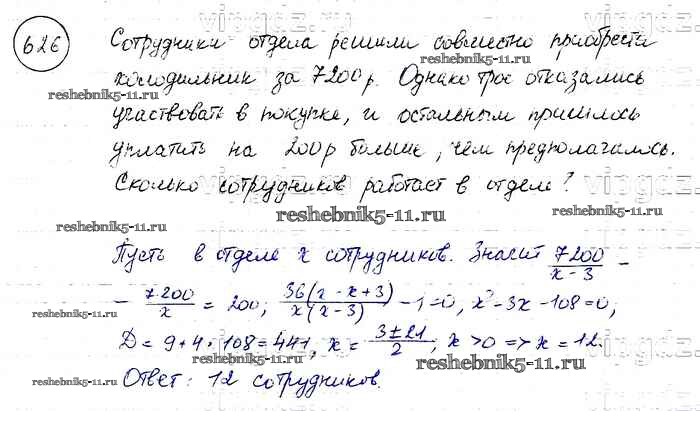 626
Сотрудники отдела решили совместно приобрести
холодильник за 7200р. Однако трое отказались
reshebnik5-11.ru
участвовать в покупке, и остальным пришлось
уплатить на 200р больше, чем предполагалось.
Сколько сотрудников работает в отделе?
reshebnik5-11.ru
reshebnik5-11.ru
Пусть в отделе x сотрудников. Значит 7200/(x-3) -
- 7200/x = 200; 36(x-x+3)/(x(x-3)) - 1=0, x²-3x-108=0;
reshebnik5-11.ru
D=9+4·108=441, x = (3±21)/2; x>0 => x=12.
reshebnik5-11.ru
reshebnik5-11.ru
Ответ: 12 сотрудников.